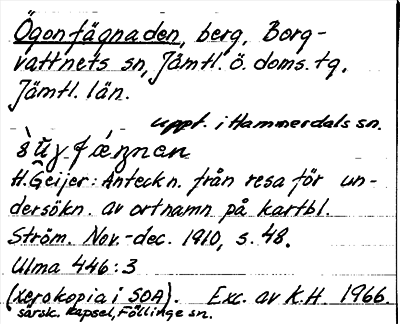 Ögonfägnaden, berg, Borg-
vattnets sn, Jämtl. ö. doms. tg.
Jämtl. län.
uppt. i Hammerdals sn.
H. Geijer: Anteckn. från resa för un-
dersökn. av ortnamn på kartbl.
Ström. Nov.-dec. 1910, s. 48.
Ulma 446:3
(xerokopia i SOA). Exc. av K.H. 1966.
särsk. kapsel, Föllinge sn.